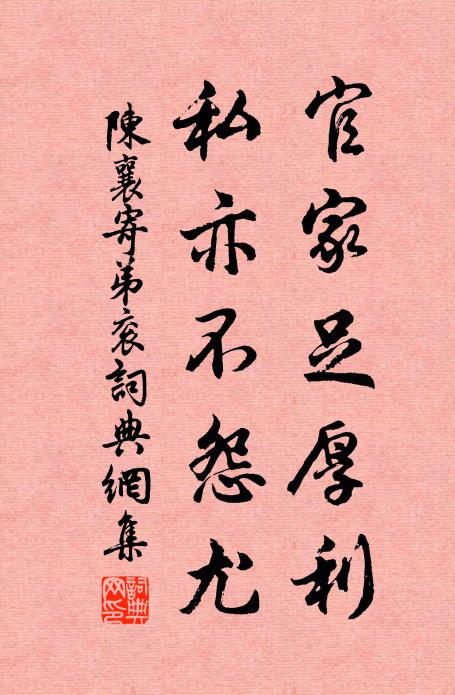 官家足厚利
私亦不怨尤
陳襄寄弟衮詞典網集
詞典网印